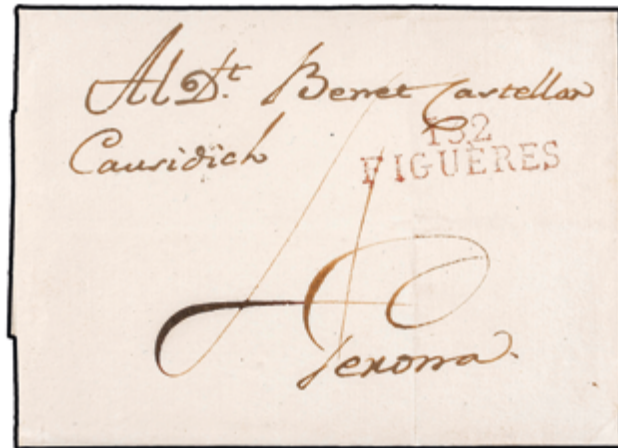 Al Dt. Benet Castellar
Causidich
132
FIGUERES
4
Gerona.